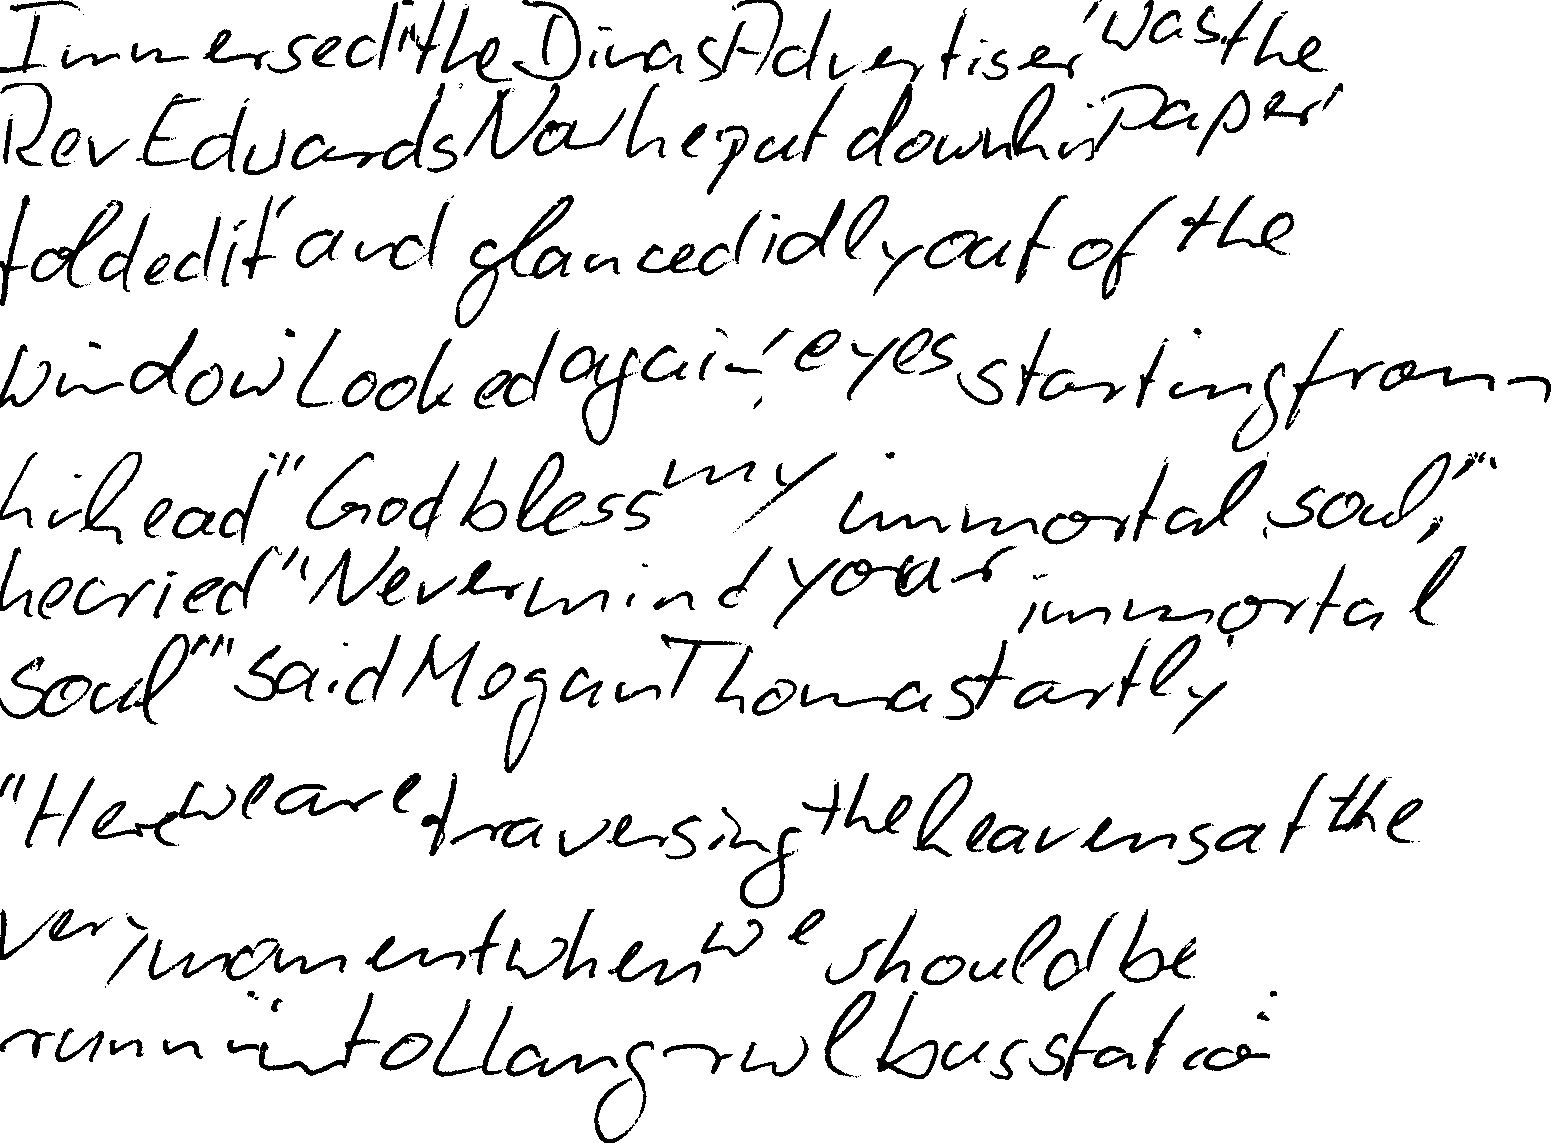 Immersed in the Dinas Advertiser, was the
Rev Edwards Now he put down his paper,
folded it, and glanced idly out of the
window Looked again, eyes starting from
his head "God bless my immortal soul,"
he cried "Never mind your immortal
soul" said Mogan Thomas tartly
"Here we are traversing the heavens at the
very moment when we should be
running into Llangrwl bus station